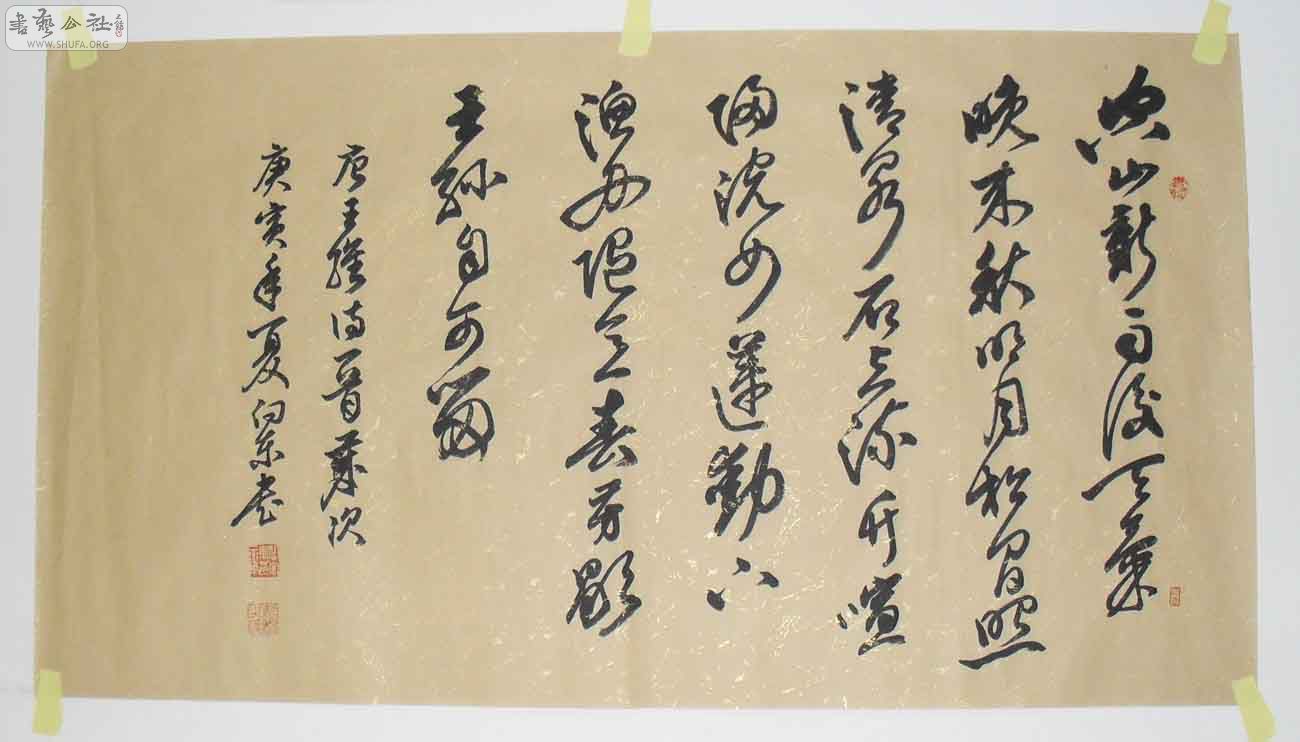 書藝公社
WWW.SHUFA.ORG
空山新雨後天氣
晚来秋明月松間照
清泉石上流竹喧
歸浣女蓮動下
漁舟隨意春芳歇
王孫自可留
唐王維诗一首
庚寅年夏